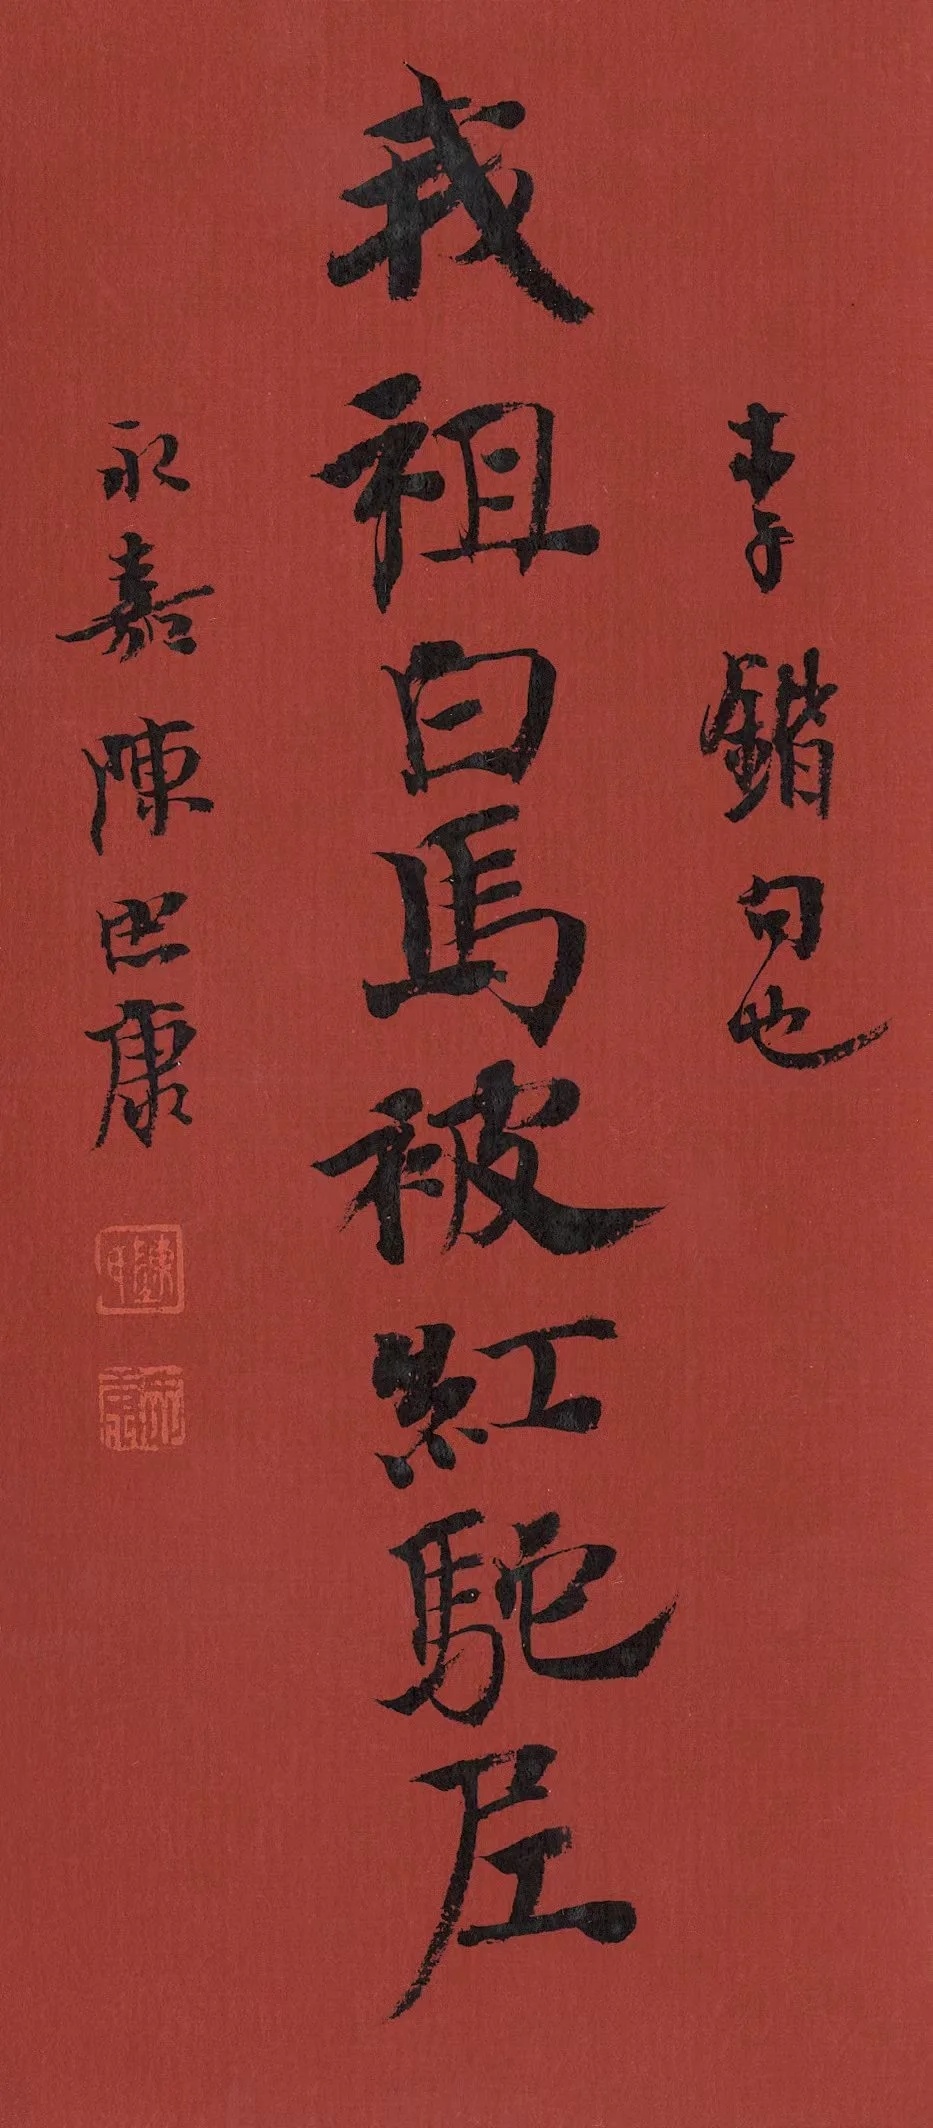 李鍇句也
我祖白馬被紅駝
永嘉陳忠康